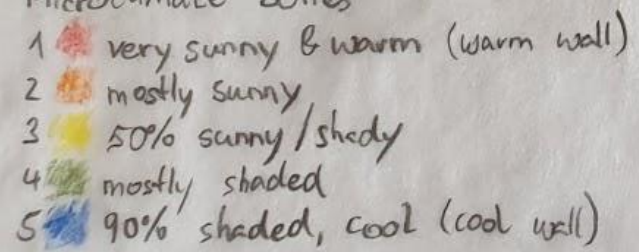 Microclimate zones
1 very sunny & warm (warm wall)
2 mostly sunny
3 50% sunny/shady
4 mostly shaded
5 90% shaded, cool (cool wall)